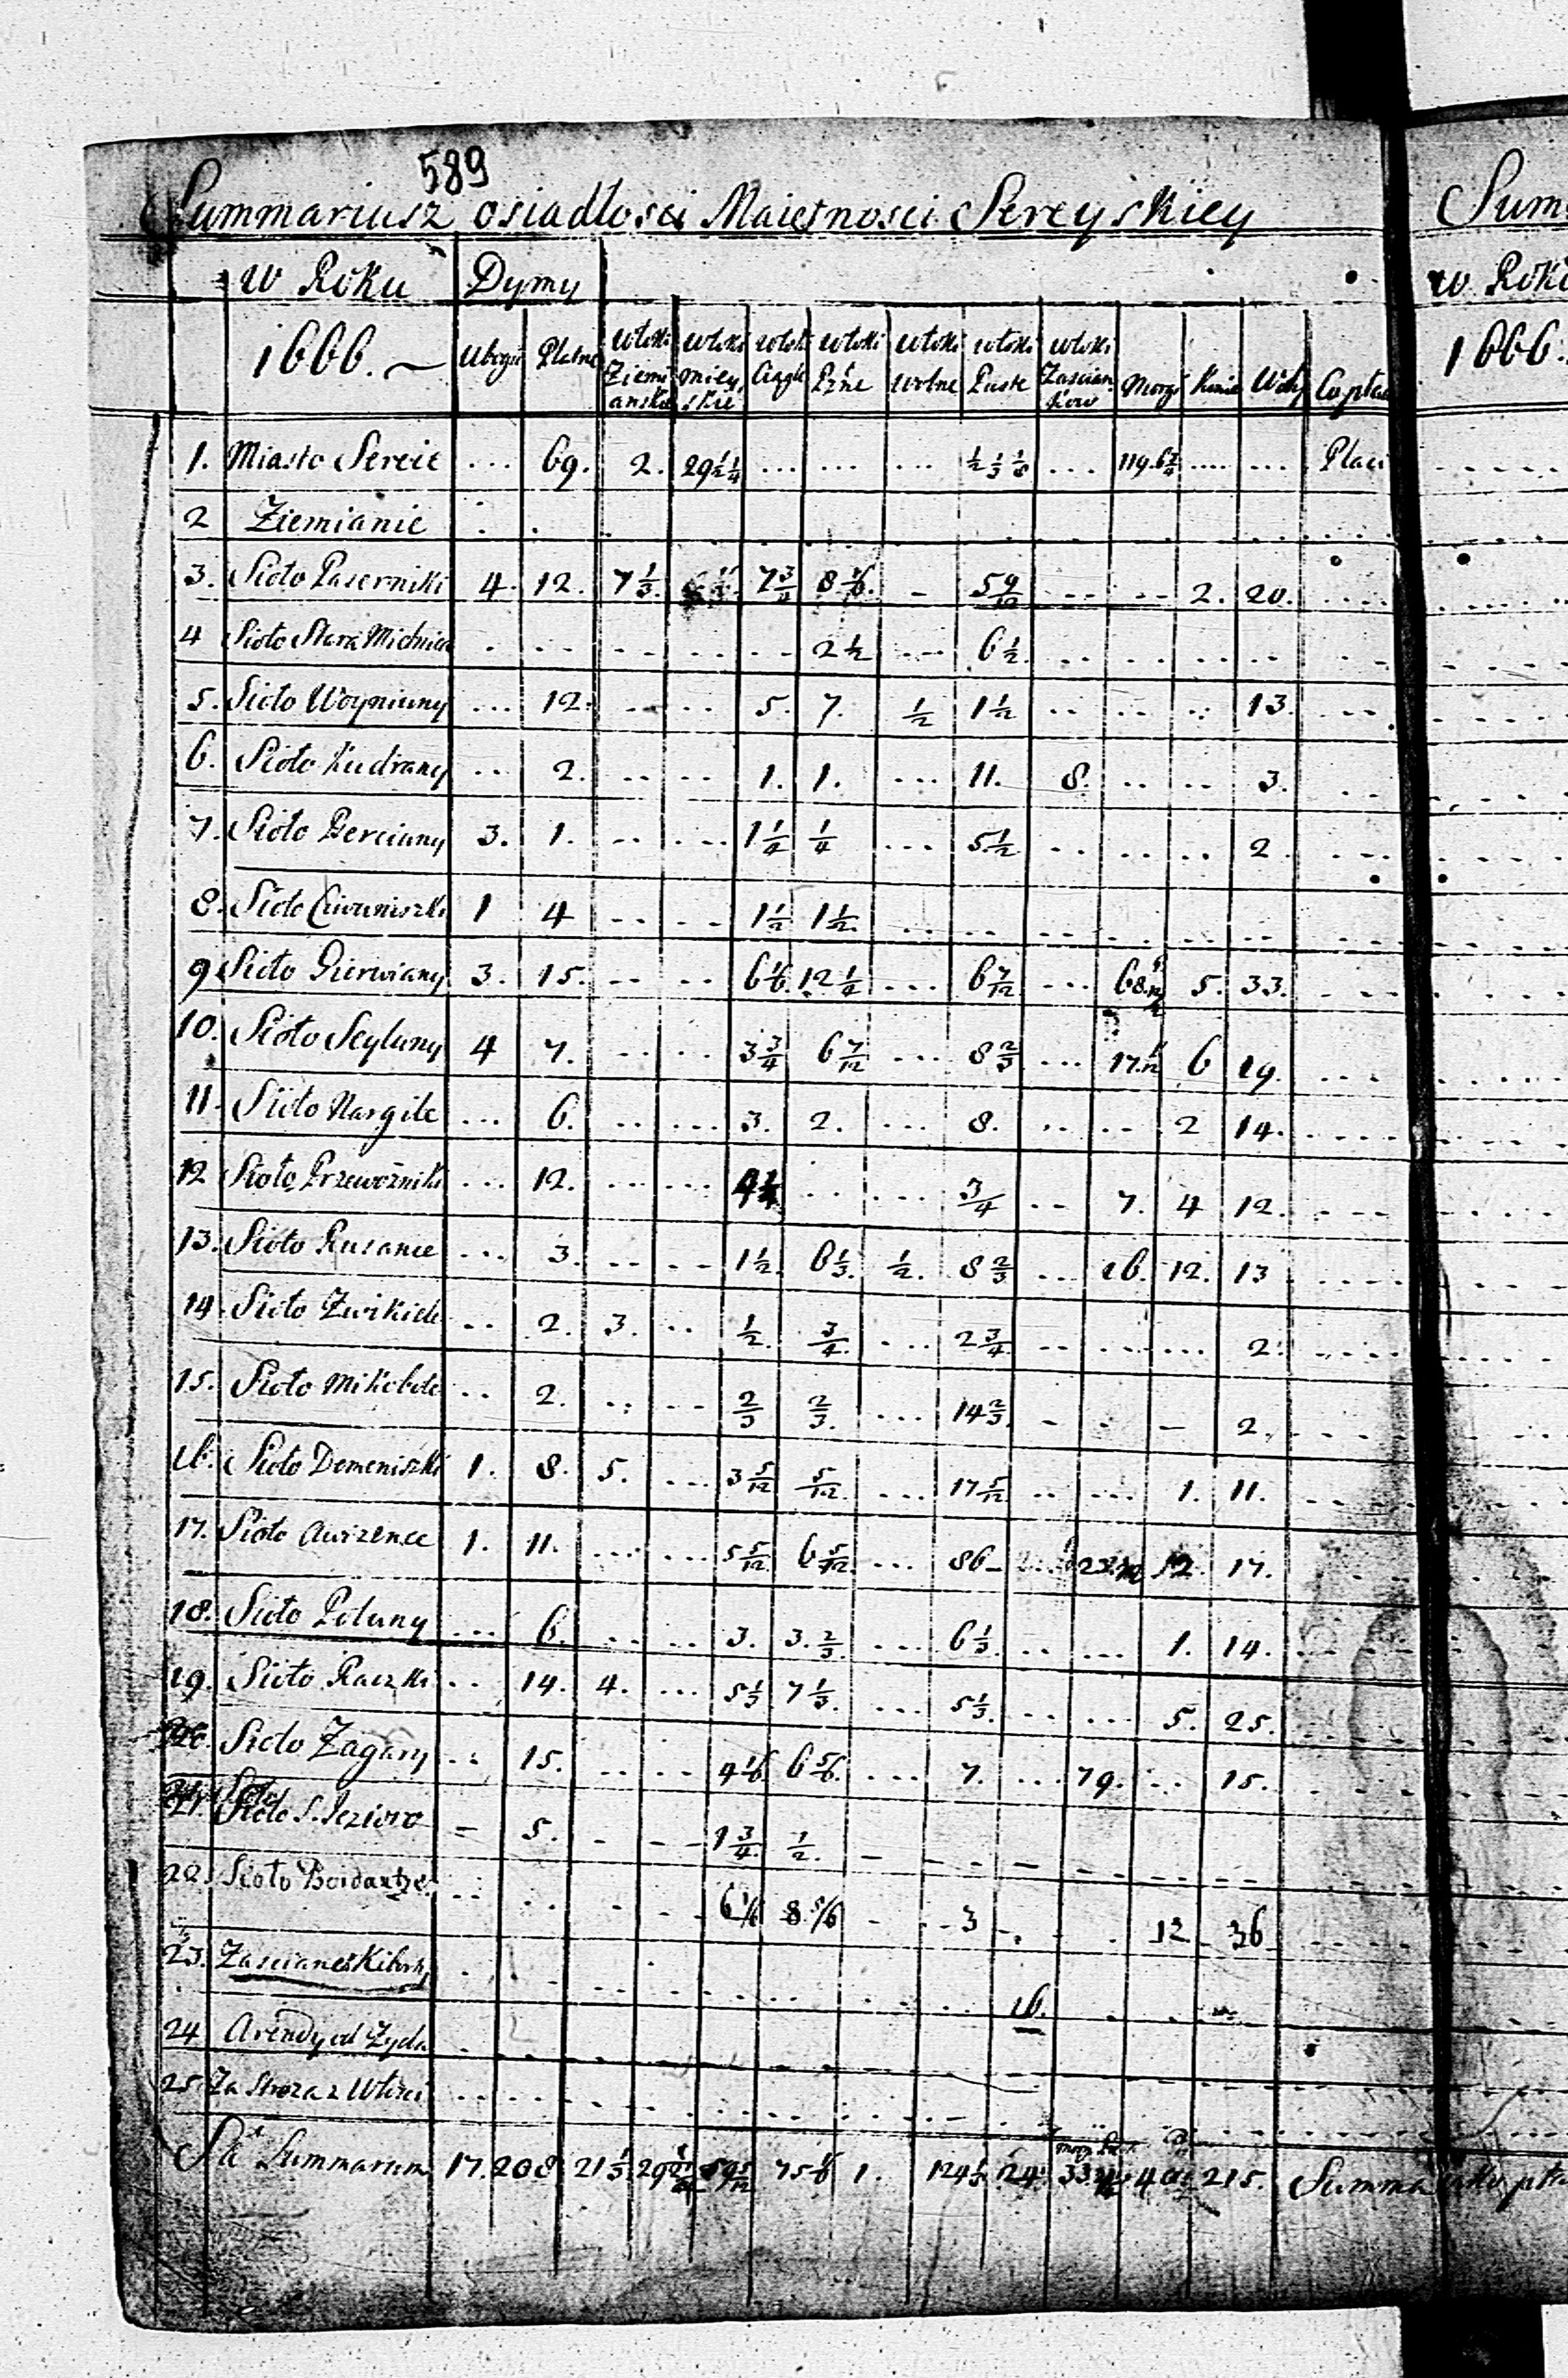 589
Summariusz osiadłosci Maiętnosci Sereyskiey
w Roku Dymy
1666. Ubogie Płatne Włoki Ziemianskie Włoki mieyskie Włoki Ciągłe Włoki Pźne Włoki wolne Włoki Puste Włoki Zascian.kow Morgi Konie Woły Co płacą
1. Miasto Sereie ... 69. 2. 29 1/2 1/4 ... ... ... 1/2 1/3 1/8 ... 119. ... ... Płaci
2 Ziemianie . .
3. Sioło Paserniki 4. 12. 7 1/3 7 3/4 8 1/6 - 5 9/12 -- -- 2. 20.
4 Sioło Stara 2 1/2 ... 6 1/2
5. Sioło Woyniuny ... 12. ... .. 5. 7. 1/2 1 1/2 .. .. .. 13.
6. Sioło Kudrany .. 2. .. .. 1. 1. ... 11. 8. .. .. 3.
7. Sioło Berciuny 3. 1. .. ... 1 1/4 1/4 ... 5 1/2 .. .. .. 2
8. Sioło Ciwuniszki 1 4 .. .. 1 1/2 1 1/2
9 Sioło Gierwiany 3. 15. .. .. 6 1/6 12 1/4 ... 6 7/12 ... 68. 5. 33.
10. Sioło Seyluny 4 7. .. .. 3 3/4 6 7/12 ... 8 2/3 ... 17. 6 19.
11. Sioło Nargile ... 6. .. ... 3. 2. ... 8. .. .. 2 14.
12 Sioło Przewoźniki ... 12. ... ... .. ... 3/4 .. 7. 4 12.
13. Sioło Kusance ... 3. .. .. 1 1/2 6 1/3 1/2 8 2/3 .. 16. 12. 13
14 Sioło Zwikiele .. 2. 3. .. 1/2 3/4 ... 2 3/4 .. ... ... 2.
15. Sioło Mikobole .. 2. .. .. 2/3 2/3 ... 14 2/3 - - - 2.
16. Sioło Domeniszki 1. 8. 5. ... 3 5/12 5/12 ... 17 5/12 .. ... 1. 11.
17. Sioło Awizence 1. 11. ... ... 5 5/12 6 5/12 ... 86 12 17.
18. Sioło Poluny ... 6. .. .. 3. 3. 2/3 ... 6 1/3 .. ... 1. 14.
19. Sioło Raczki .. 14. 4. ... 5 1/3 7 1/3 ... 5 1/3 .. ... 5. 25.
20. Sioło Zagary .. 15. .. .. 4 1/6 6 5/6 ... 7. ... 79. .. 15.
21. Sioło S. Jezioro - 5. - - 1 3/4 1/2 -
22. Sioło .. .. 6 1/6 8 5/6 - 3 12 36
23. Zascianek 16.
24 Arendy od Żyda
25. Za Stroza z Włoki
Summarum 17. 208 21 1/3 75 1/6 1. 124 1/2 24 215. Summa
Sum
w Roku
1666.